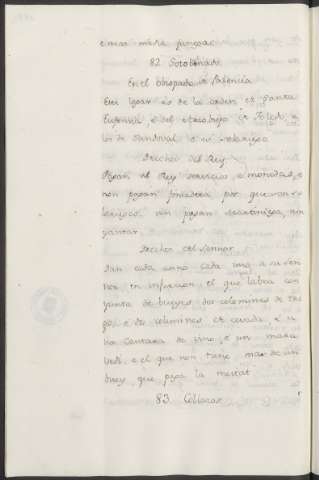 82. Sotobañado
En el obispado de Palencia
Este logar es de la orden de Santa
Eufemia, e del Arzobispo de Toledo, e
los de Sandoval e es solariego
Derechos del Rey
Pagan al Rey servicios, e monedas, e
non pagan fonsadera por que non
non pagan martiniega, nin
yantar.
Derechos del Sennor
Dan cada anno cada uno a su sen-
nor, en infurcion el que labra con
yunta de bueyes dos celemines de tri-
go, e dos celemines de cevada, e u-
na cantara de vino, e un mara-
vedi, e el que non tiene mas de un
buey, que peche la meitat.
83. Collazos